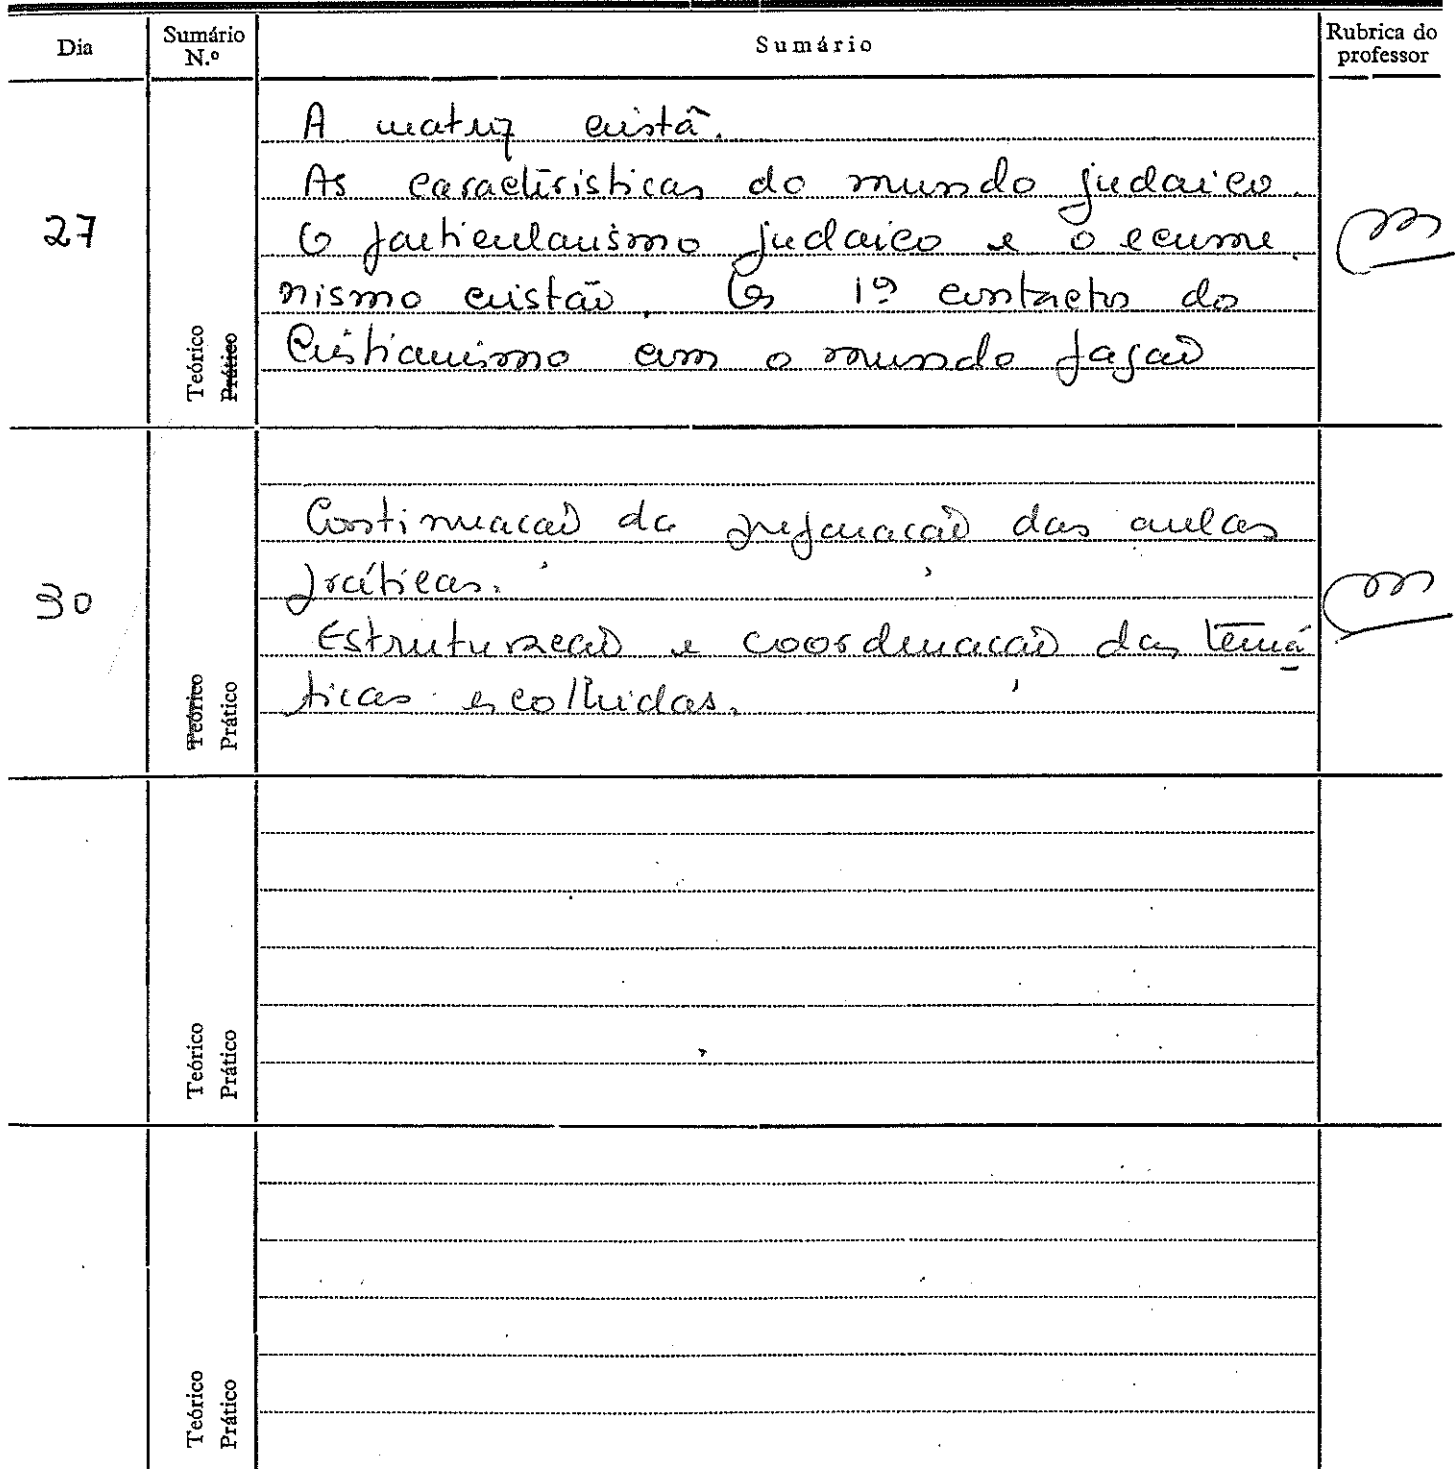 Dia Sumário N.º Sumário Rubrica do professor
A matriz cristã.
As características do mundo judaico.
27 O particularismo judaico e o ecume
nismo cristão. Os 1ºs contactos do
Cristianismo com o mundo pagão
Teórico
Prático
Continuação da preparação das aulas
práticas.
30
Estruturação e coordenação das temá
ticas escolhidas.
Teórico
Prático
Teórico
Prático
Teórico
Prático